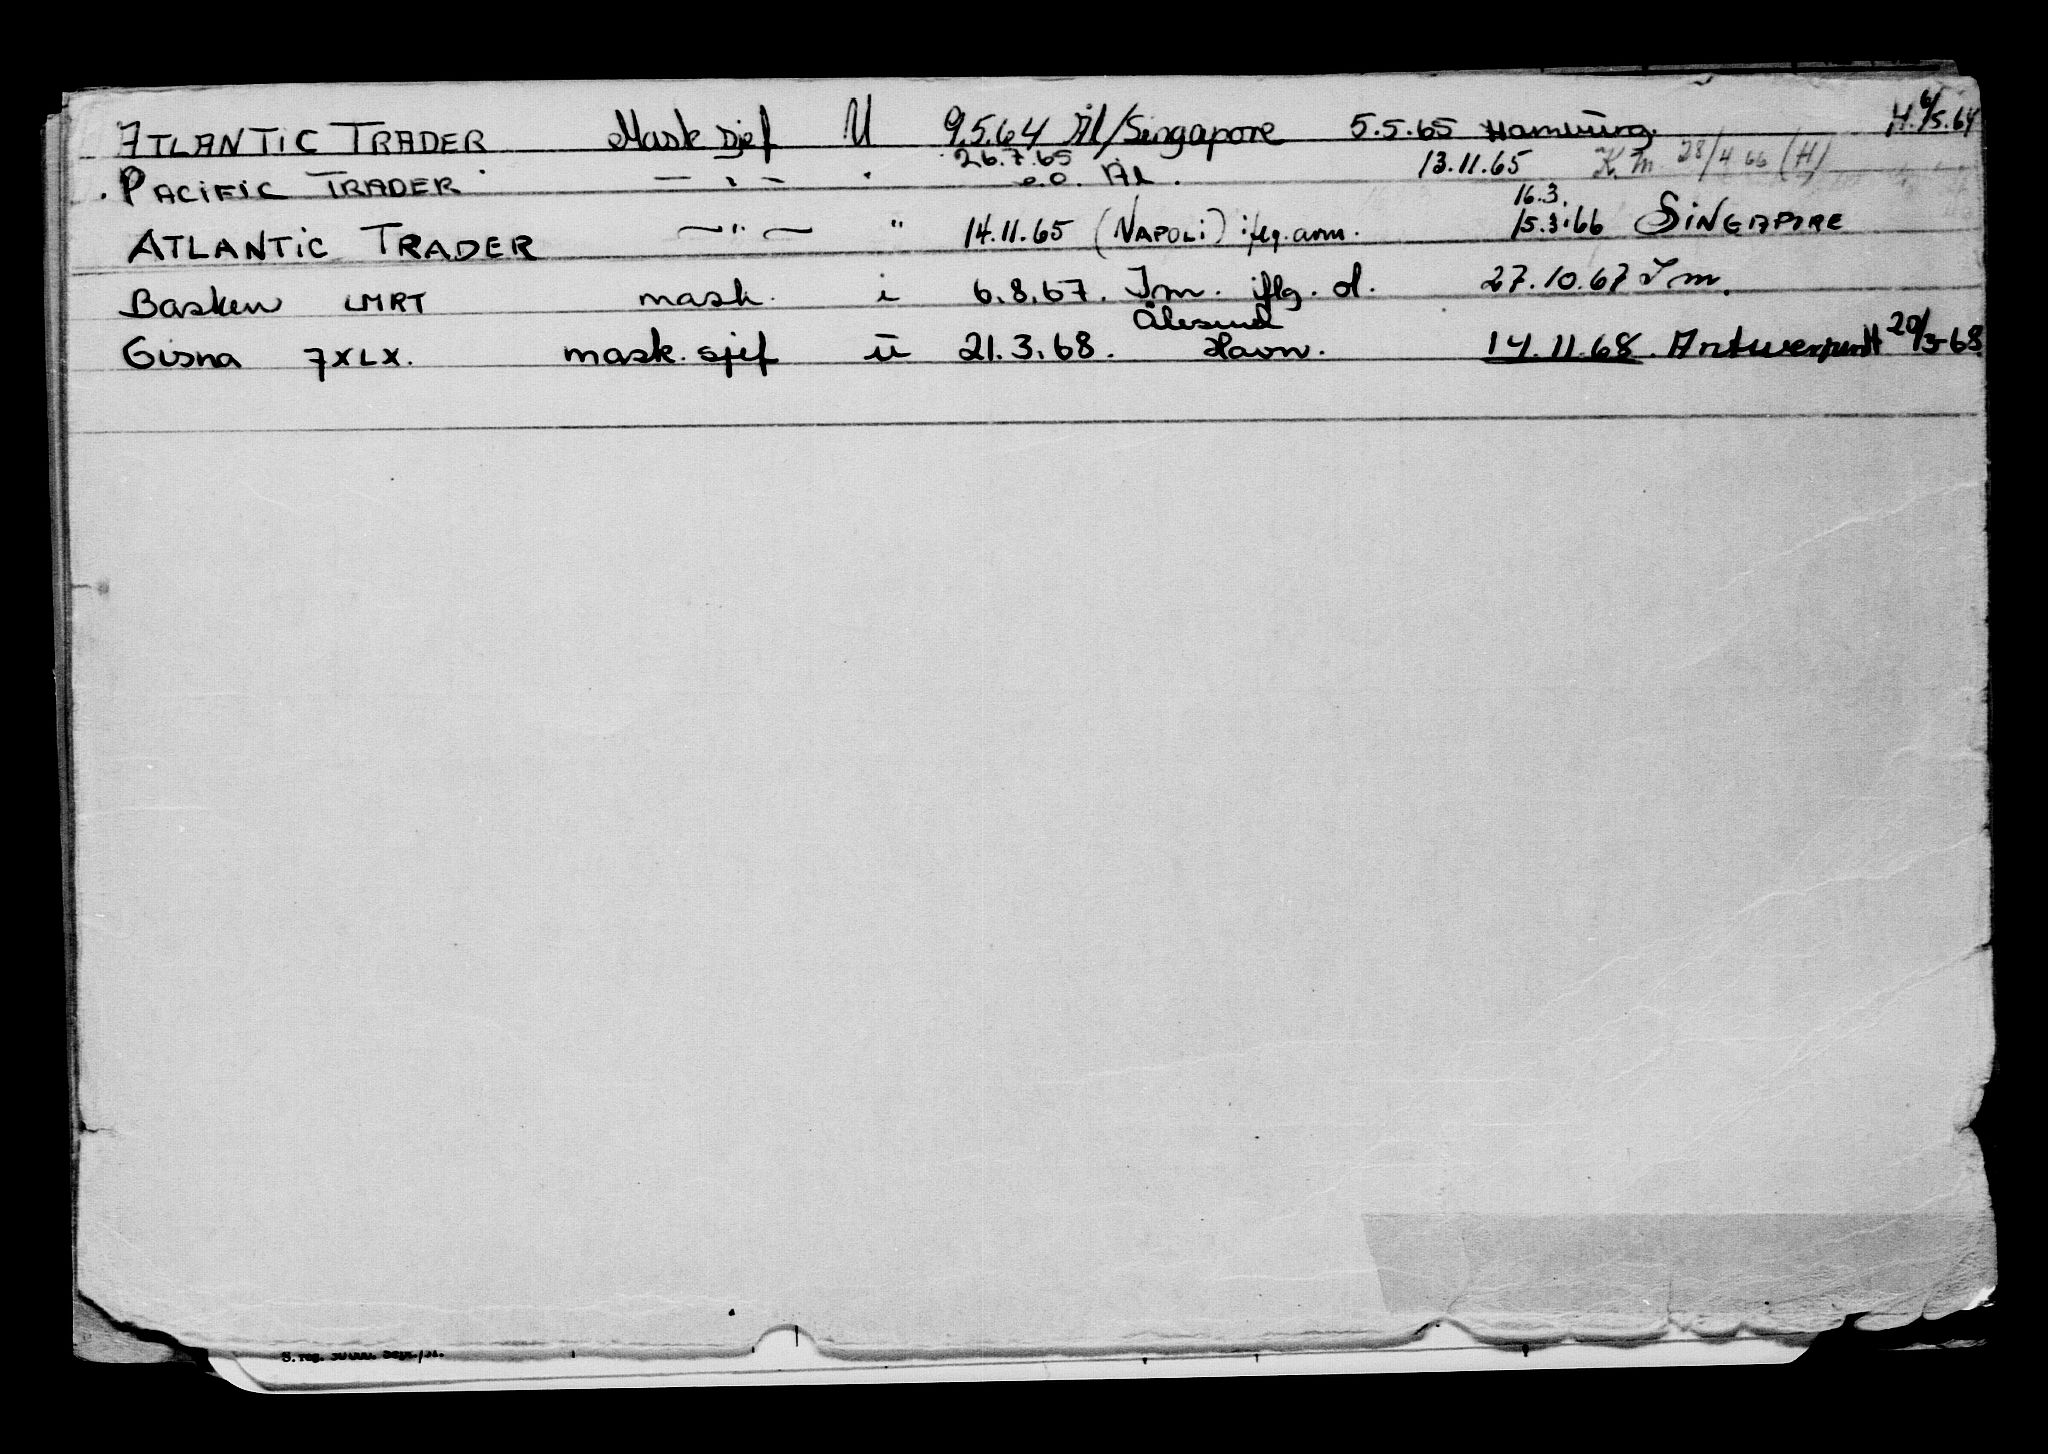 ATLANTIC TRADER Mask sjef U 9.5.64 Ål/Singapore 5.5.65 Hamburg H. 6/5.64
PACIFIC TRADER — " — " 26.7.65 e.o. ÅL. 13.11.65 K.m 28/4 66 (H)
ATLANTIC TRADER — " — " 14.11.65 (NAPOLI) iflg. avm. 16.3. 15.3.66 SINGAPORE
Basken LMRT mask. i 6.8.67. Im. iflg. d. 27.10.67 Im.
Gisna 7XLX. mask. sjef u 21.3.68. Ålesund Havn. 14.11.68. Antwerpen H 20/3-68